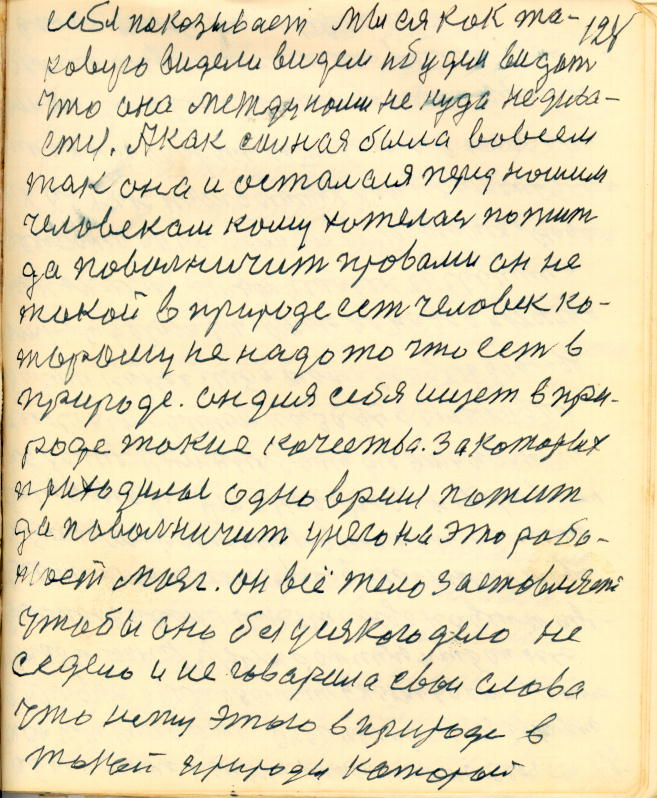 себя показывает мы ся как та- 128
ковую видели видем и будем видать
что она между ними не куда не дива-
ется. А как синая была вовсем
так она и осталася перед ношим
человекам кому хотелася пожит
да поволничит провами он не
такой в природе ест человек ко-
торому не надо то что ест в
природе. он для себя ищет в при-
роде такие качества. За которых
приходилос одно время пожит
да поволничит у него на это рабо-
тает мозг. он всё тело заставляет
чтобы оно без усякого дело не
седело и не говарила свои слова
что нету этого в природе в
такой природи каторый